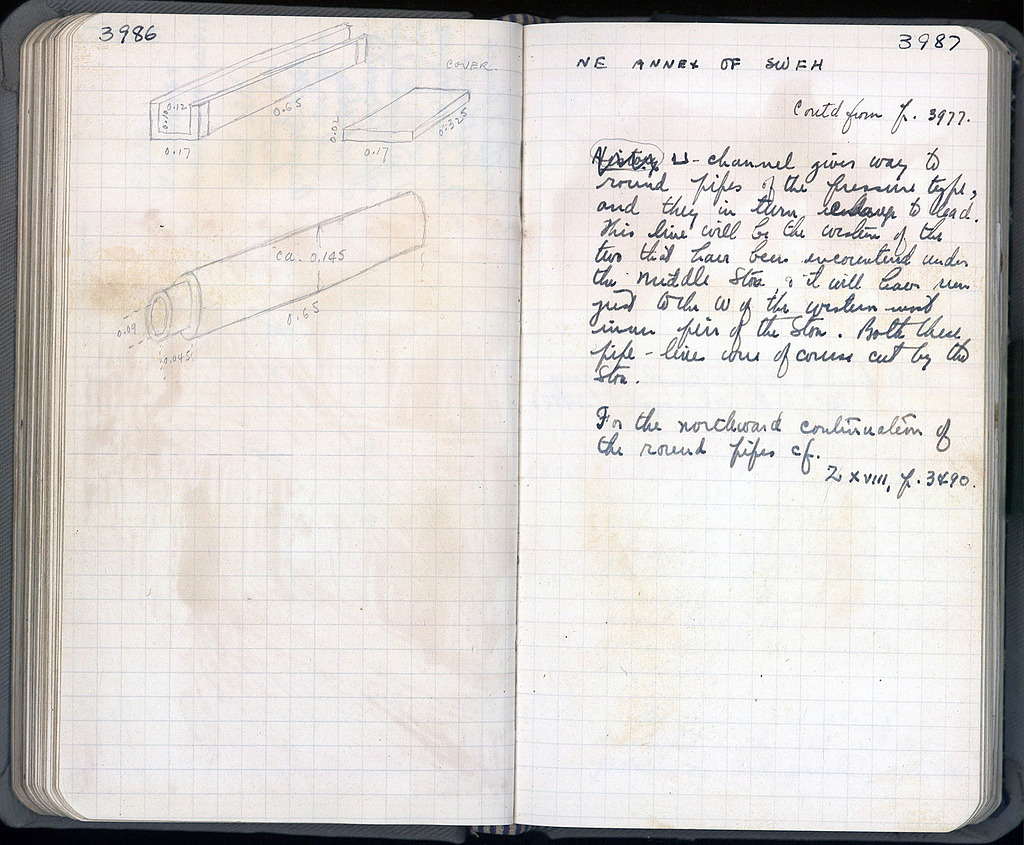 3986
COVER
0.12
0.10
0.65
0.17
0.02
0.17
0.325
ca. 0.145
0.65
0.09
0.045
3987
NE ANNEX OF SWFH
Cont'd from p. 3977.
U-channel gives way to
round pipes of the pressure type,
and they in turn change to lead.
This line will be the western of the
two that have been encountered under
the Middle Stoa, & it will have run
just to the W of the western most
inner pier of the Stoa. Both these
pipe-lines were of course cut by the
Stoa.
For the northward continuation of
the round pipes cf.
Z XVIII, p. 3490.